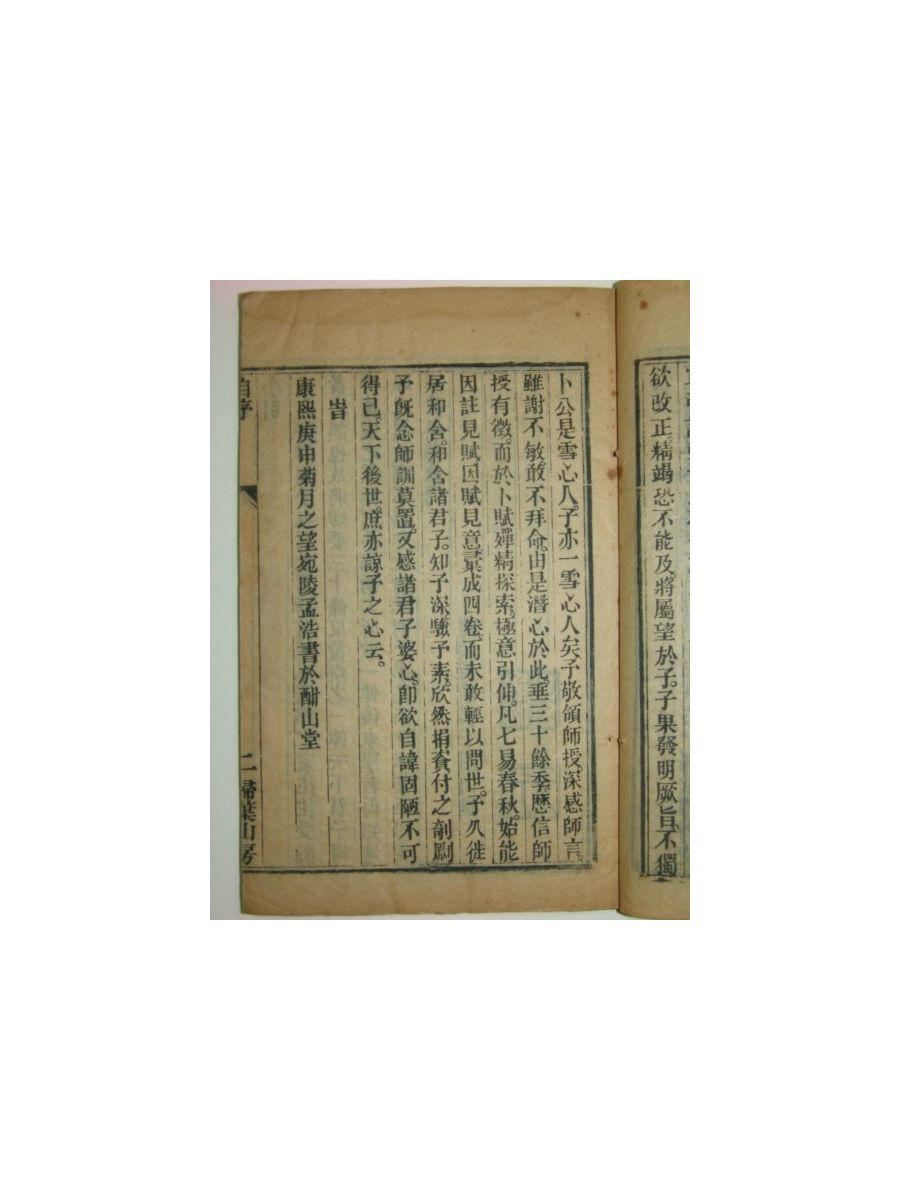 欲改正精竭恐不能及。將屬望於子。子果發明厥旨。不獨
卜公是雪心人。子亦一雪心人矣。予敬領師授深感師言
雖謝不敏敢不拜命。由是潛心於此。垂三十餘季。歷信師
授有徵。而於卜賦殫精探索。極意引伸。凡七易春秋。始能
因註見賦因賦見意彚成四卷。而未敢輕以問世。予久徙
居和舍。和舍諸君子。知予深。驗予素。欣然捐貲付之剞劂
予旣念師訓莫置。又感諸君子婆心。卽欲自諱固陋不可
得已。天下後世。庶亦諒予之心云。
旹
康熙庚申菊月之望宛陵孟浩書於酣山堂
自序
二
掃葉山房